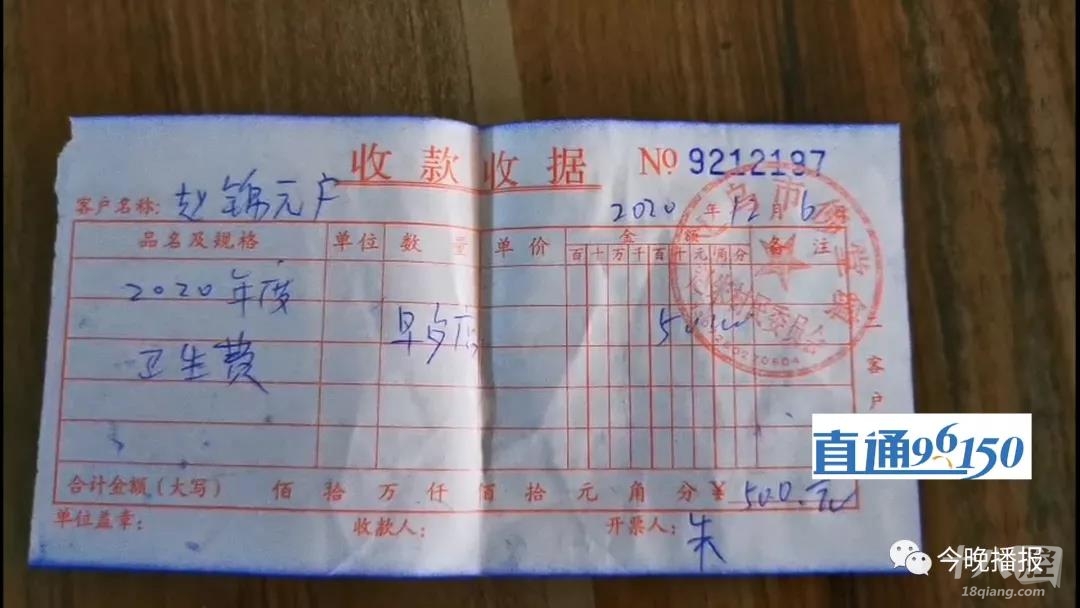 收款收据 № 9212197
客户名称: 赵锦元户 2020年12月6
品名及规格 单位 数量 单价 金额 备注
百十万千百十元角分
2020年度
早点店 500
卫生费
一客户
合计金额(大写) 佰拾万仟佰拾元角分 ¥ 500.元
单位盖章: 收款人: 开票人: 朱
委员会
直通96150
今晚播报
18qiang.com